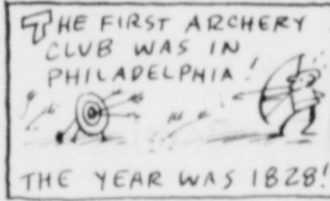 THE FIRST ARCHERY
CLUB WAS IN
PHILADELPHIA!
THE YEAR WAS 1828!